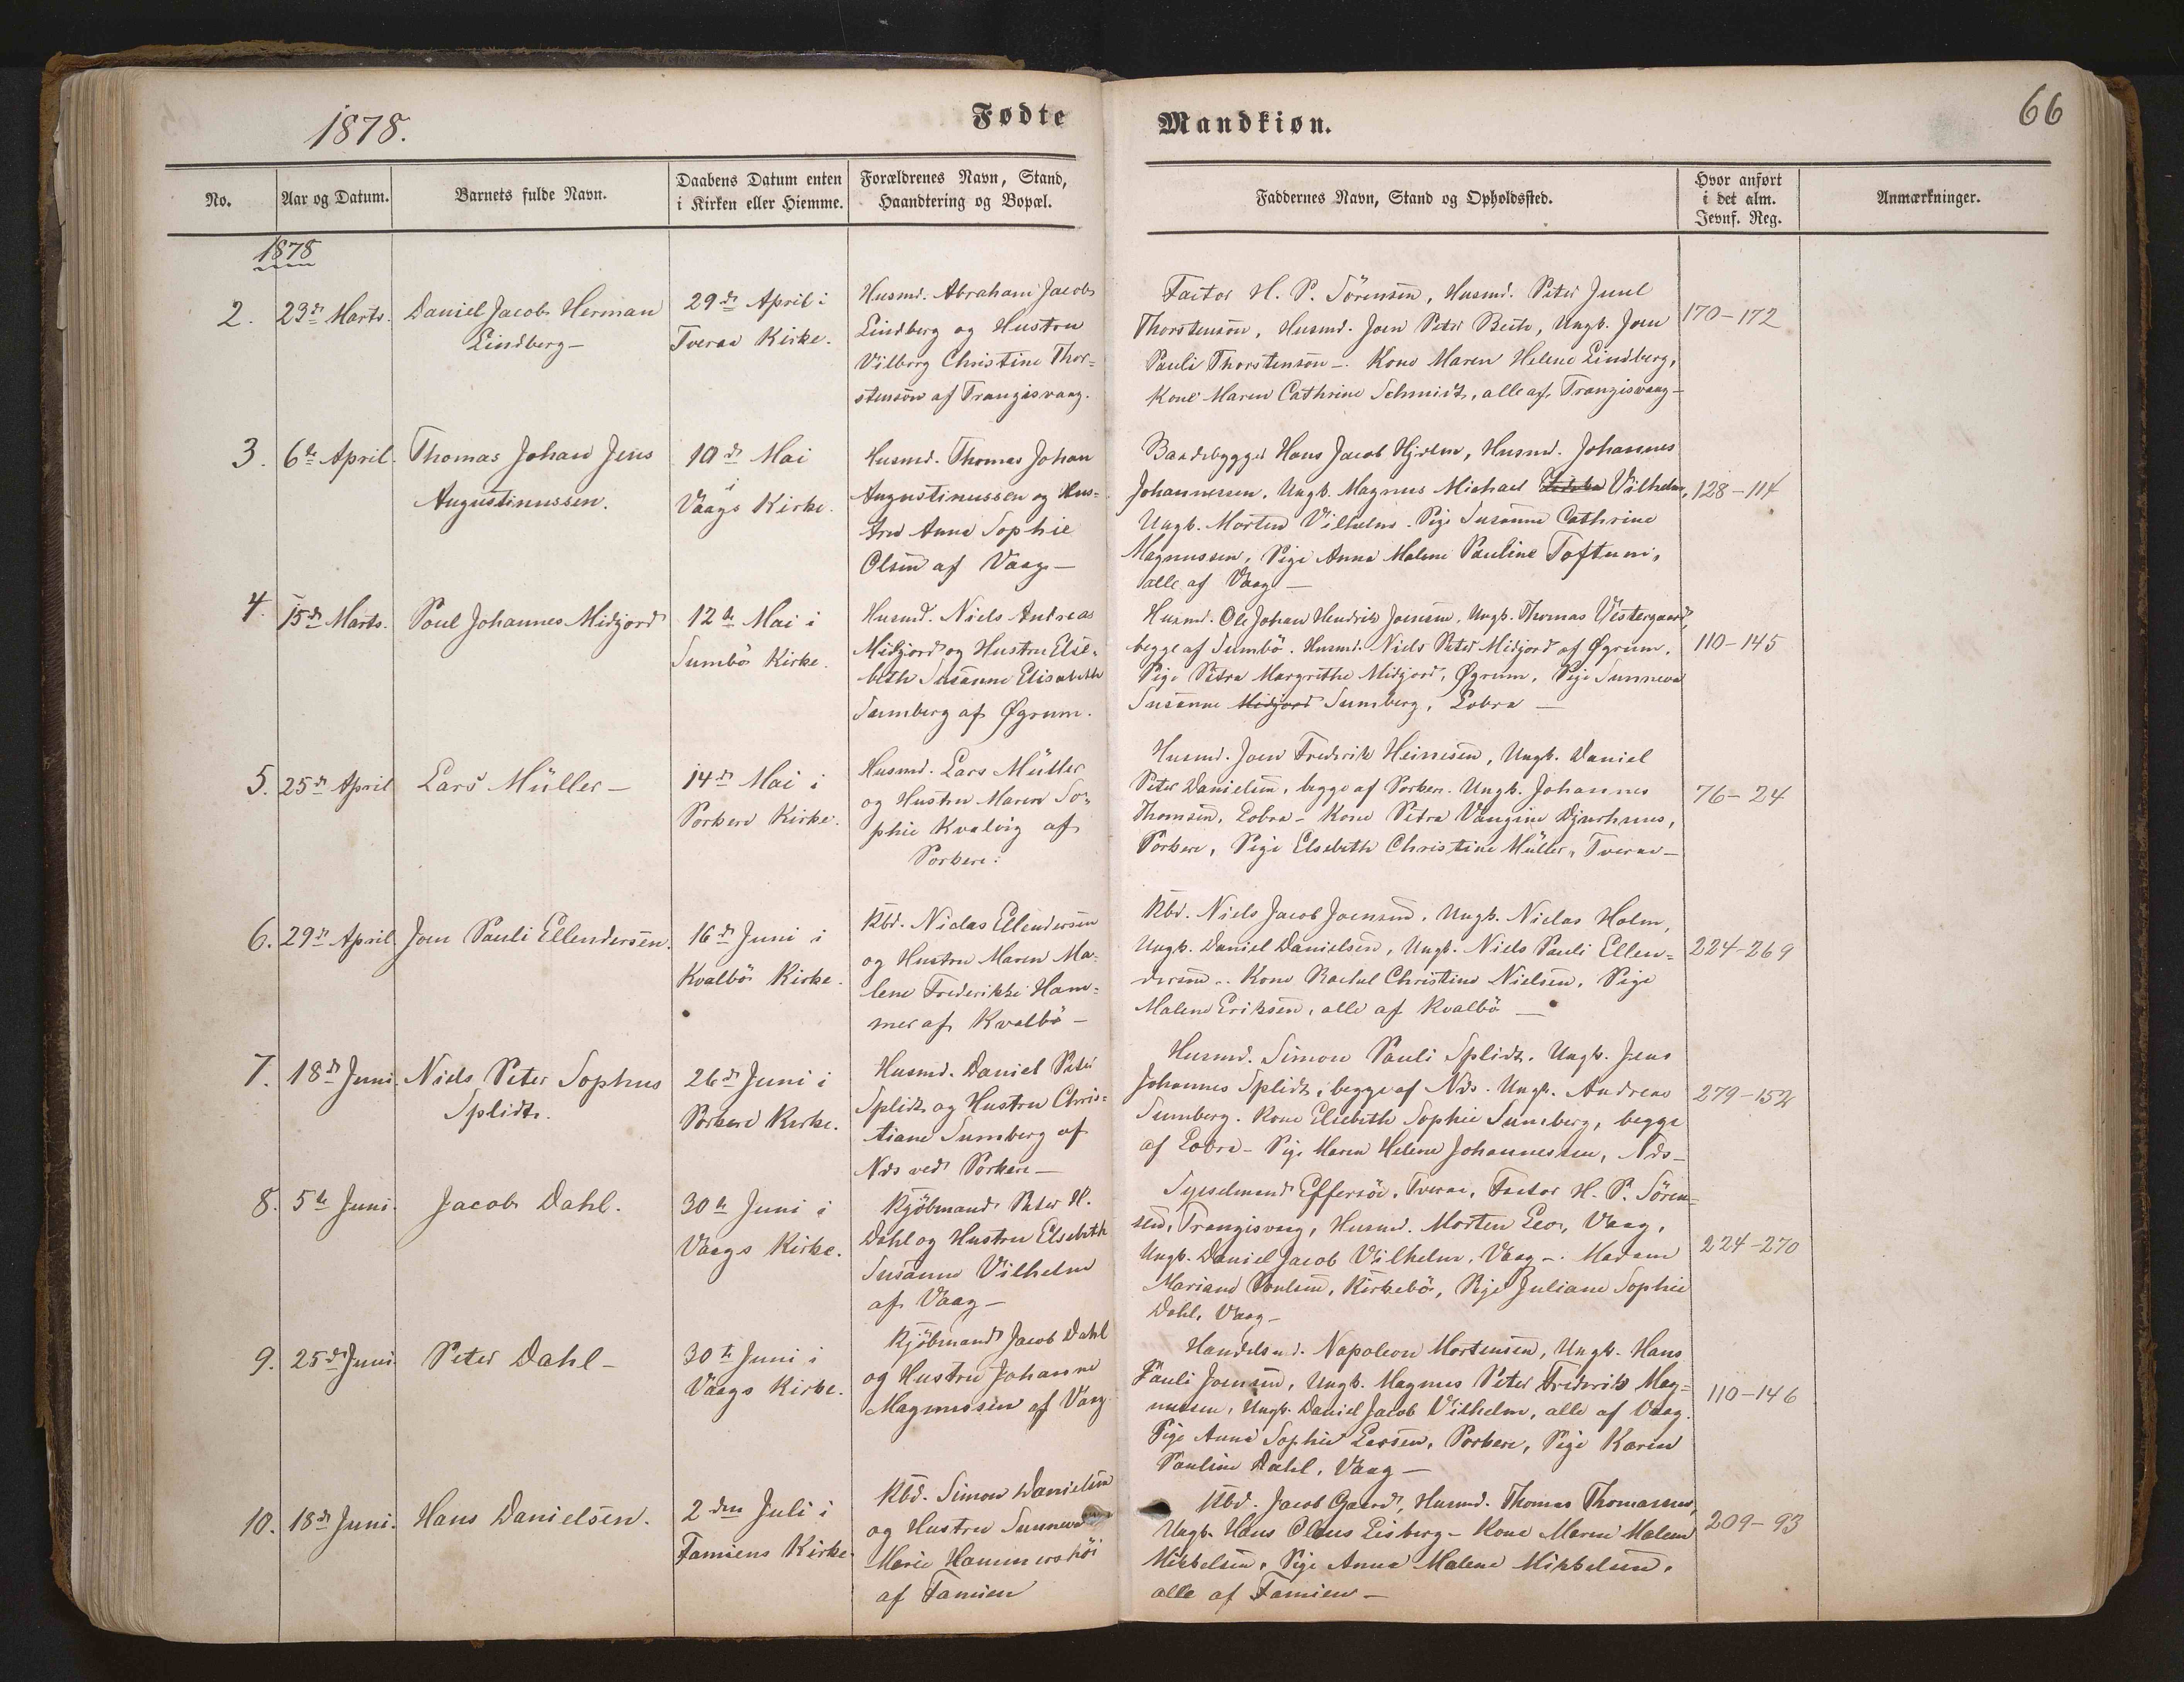 1878.
Fødte
Mandkiøn.
66
No.
Aar og Datum.
Barnets fulde Navn.
Daabens Datum enten
i Kirken eller Hiemme.
Forældrenes Navn, Stand,
Haandtering og Bopæl.
Faddernes Navn, Stand og Opholdssted.
Hvor anført
i det alm.
Jevnf. Reg.
Anmærkninger.
1878
2. 23de Marts.
Daniel Jacob Herman
Lindberg –
29de April i
Tveraa Kirke.
Husmd. Abraham Jacob
Lindberg og Hustru
Vilborg Christine Thor=
stensön af Trangisvaag.
Factor H. P. Sörensen, Husmd. Peter Juul
Thorstenson, Husmd. Joen Peter Beito, Ungk. Joen
Pauli Thorstenson –. Kone Maren Helene Lindberg,
Kone Maren Cathrine Schmidt, alle af Trangisvaag –
170–172
3. 6te April.
Thomas Johan Jens
Augustinussen.
10de Mai
i
Vaags Kirke.
Husmd. Thomas Johan
Augustinussen og Hus=
tru Anna Sophie
Olsen af Vaag –
Baadebygger Hans Jacob Hjelm, Husmd. Johannes
Johannessen, Ungk. Magnus Michael Vilhelm,
Ungk. Morten Vilhelm. Pige Susanne Cathrine
Magnussen, Pige Anna Malene Pauline Toftum,
alle af Vaag –
128–114
4. 15de Marts.
Poul Johannes Midjord
12te Mai i
Sumbö Kirke.
Husmd. Niels Andreas
Midjord og Hustru Else=
beth Susanne Elisabeth
Sumberg af Øgrum.
Husmd. Ole Johan Hendrik Joensen, Ungk. Thomas Vestergaard,
begge af Sumbö. Husmd. Niels Peter Midjord af Øgrum.
Pige Petra Margrethe Midjord, Øgrum, Pige Sunneva
Susanne Midjord Sumberg, Lobra –
110–145
5. 25de April
Lars Müller –
14de Mai i
Porkere Kirke.
Husmd. Lars Müller
og Hustru Maren So=
phie Kvalvig af
Porkere.
Husmd. Joen Frederik Heinesen, Ungk. Daniel
Peter Danielsen, begge af Porkere. Ungk. Johannes
Thomsen, Lobra – Kone Petra Vaugine Djurhuus,
Porkere, Pige Elsebeth Christine Müller, Tveraa –
76–24
6. 29de April.
Joen Pauli Ellendersen.
16de Juni i
Kvalbö Kirke.
Kbd. Niclas Ellendersen
og Hustru Maren Ma=
lene Frederikke Ham=
mer af Kvalbö –
Kbd. Niels Jacob Joensen, Ungk. Niclas Holm,
Ungk. Daniel Danielsen, Ungk. Niels Pauli Ellen=
dersen. Kone Rachel Christine Nielsen, Pige
Malene Eriksen, alle af Kvalbö –
224–269
7. 18de Juni.
Niels Peter Sophus
Splidt.
26de Juni i
Porkere Kirke.
Husmd. Daniel Peter
Splidt og Hustru Chris=
tiane Sumberg af
Næs ved Porkere –
Husmd. Simon Pauli Splidt, Ungk. Jens
Johannes Splidt, begge af Næs. Ungk. Andreas
Sumberg. Kone Elsebeth Sophie Sumberg, begge
af Lobra – Pige Maren Helene Johannessen, Næs –
279–152
8. 5te Juni.
Jacob Dahl.
30te Juni i
Vaags Kirke.
Kjöbmand Peter H.
Dahl og Hustru Elsebeth
Susanne Vilhelm
af Vaag –
Sysselmand Effersöe, Tveraa, Factor H. P. Sören=
sen, Trangisvaag, Husmd. Morten Leo, Vaag,
Ungk. Daniel Jacob Vilhelm, Vaag –. Madame
Mariane Poulsen, Kirkebö, Pige Juliane Sophie
Dahl, Vaag –
224–270
9. 25de Juni.
Peter Dahl –
30te Juni i
Vaags Kirke.
Kjöbmand Jacob Dahl
og Hustru Johanne
Magnussen af Vaag
Handelsmd. Napoleon Mortensen, Ungk. Hans
Pauli Joensen, Ungk. Magnus Peter Frederik Mag=
nussen, Ungk. Daniel Jacob Vilhelm, alle af Vaag.
Pige Anna Sophie Larsen, Porkere, Pige Karen
Pauline Dahl, Vaag –
110–146
10. 18de Juni.
Hans Danielsen.
2den Juli i
Famiens Kirke.
Kbd. Simon Danielsen
og Hustru Sunneva
Marie Hammershöi
af Famien
Kbd. Jacob Gaard, Husmd. Thomas Thomassen,
Ungk. Hans Claus Eisberg – Kone Maren Malene
Mikkelsen, Pige Anna Malene Mikkelsen,
alle af Famien –
209–93